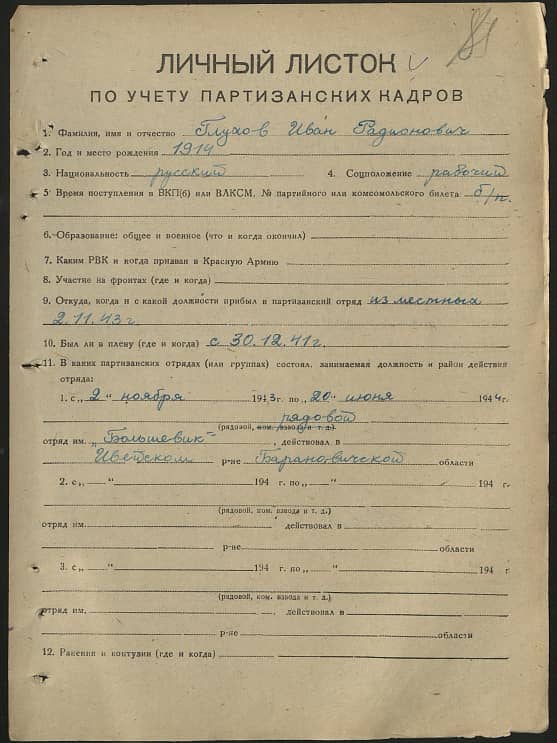 81
ЛИЧНЫЙ ЛИСТОК
ПО УЧЕТУ ПАРТИЗАНСКИХ КАДРОВ
1. Фамилия, имя и отчество Глухов Иван Радионович
2. Год и место рождения 1914
3. Национальность русский 4. Соцположение рабочий
5. Время поступления в ВКП(б) или ВЛКСМ, № партийного или комсомольского билета б/п.
6. Образование: общее и военное (что и когда окончил)
7. Каким РВК и когда призван в Красную Армию
8. Участие на фронтах (где и когда)
9. Откуда, когда и с какой должности прибыл в партизанский отряд из местных
2.11.43 г.
10. Был ли в плену (где и когда) с 30.12.41 г.
11. В каких партизанских отрядах (или группах) состоял, занимаемая должность и район действия
отряда:
1. с „2“ ноября 1943 г. по „20“ июня 1944 г.
рядовой
(рядовой, ком. взвода и т. д.)
отряд им. „Большевик“, действовал в
Ивенском р-не Барановичской области
2. с „ “ 194 г. по „ “ 194 г.
(рядовой, ком. взвода и т. д.)
отряд им. действовал в
р-не области
3. с „ “ 194 г. по „ “ 194 г.
(рядовой, ком. взвода и т. д.)
отряд им. , действовал в
р-не области
12. Ранения и контузии (где и когда)